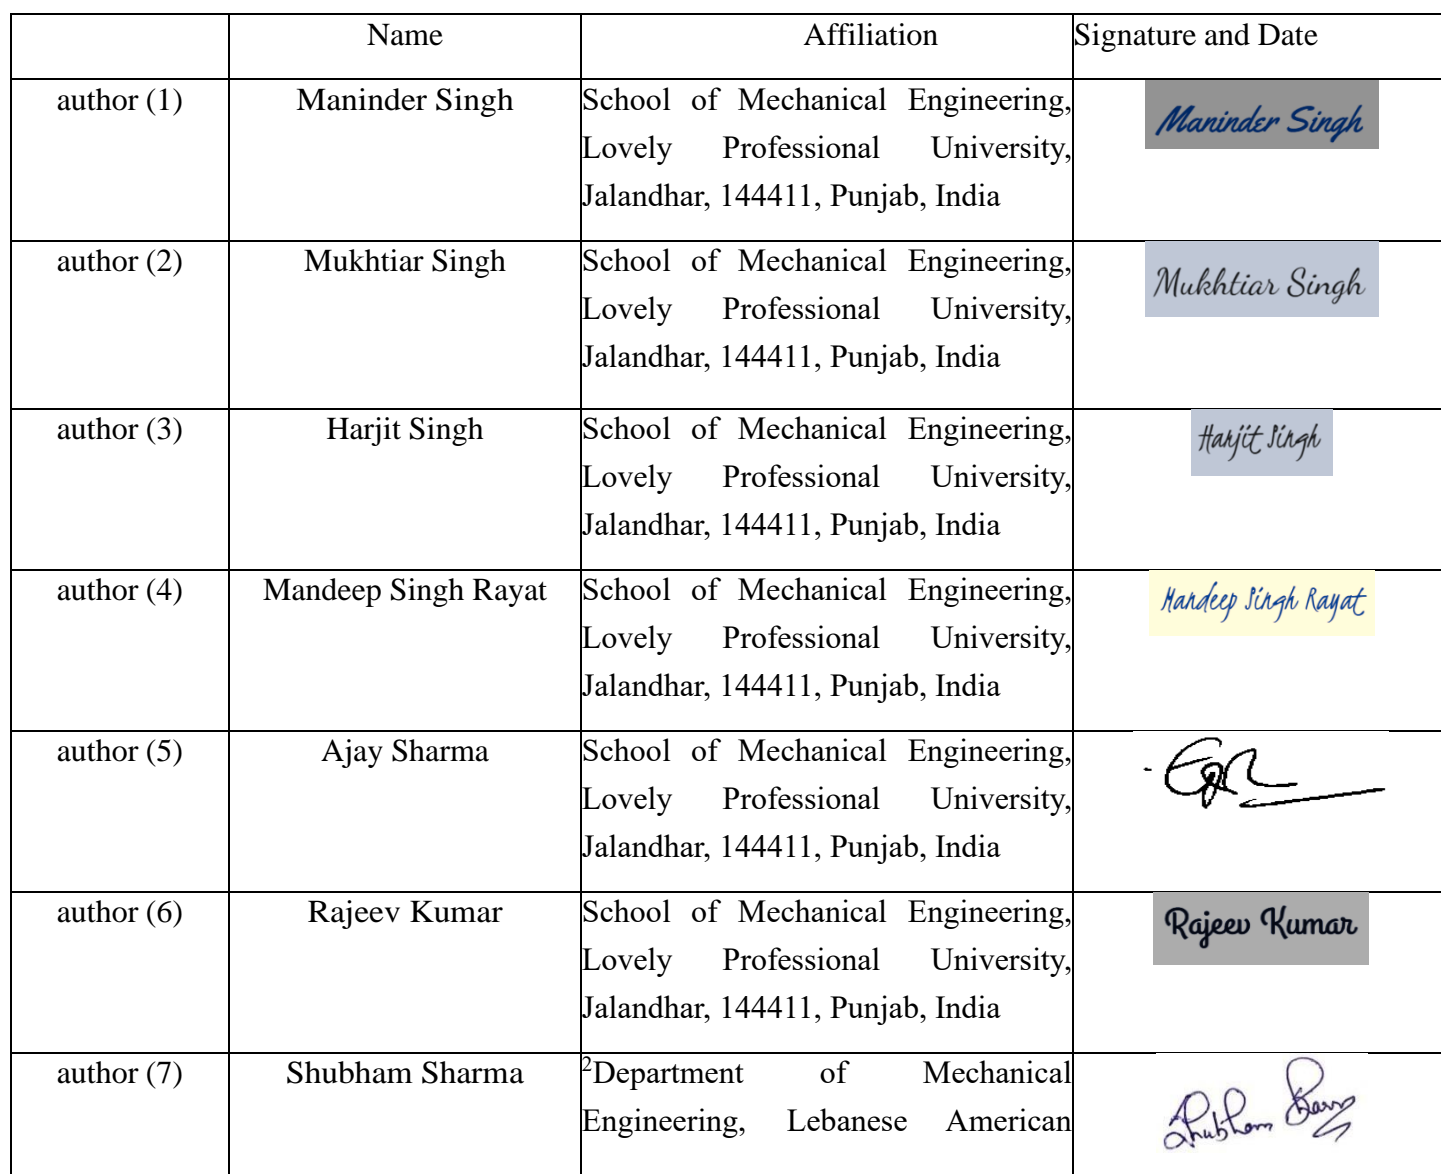 Name Affiliation Signature and Date
author (1) Maninder Singh School of Mechanical Engineering, Maninder Singh
Lovely Professional University,
Jalandhar, 144411, Punjab, India
author (2) Mukhtiar Singh School of Mechanical Engineering, Mukhtiar Singh
Lovely Professional University,
Jalandhar, 144411, Punjab, India
author (3) Harjit Singh School of Mechanical Engineering, Harjit Singh
Lovely Professional University,
Jalandhar, 144411, Punjab, India
author (4) Mandeep Singh Rayat School of Mechanical Engineering, Mandeep Singh Rayat
Lovely Professional University,
Jalandhar, 144411, Punjab, India
author (5) Ajay Sharma School of Mechanical Engineering,
Lovely Professional University,
Jalandhar, 144411, Punjab, India
author (6) Rajeev Kumar School of Mechanical Engineering, Rajeev Kumar
Lovely Professional University,
Jalandhar, 144411, Punjab, India
author (7) Shubham Sharma ²Department of Mechanical Shubham
Engineering, Lebanese American